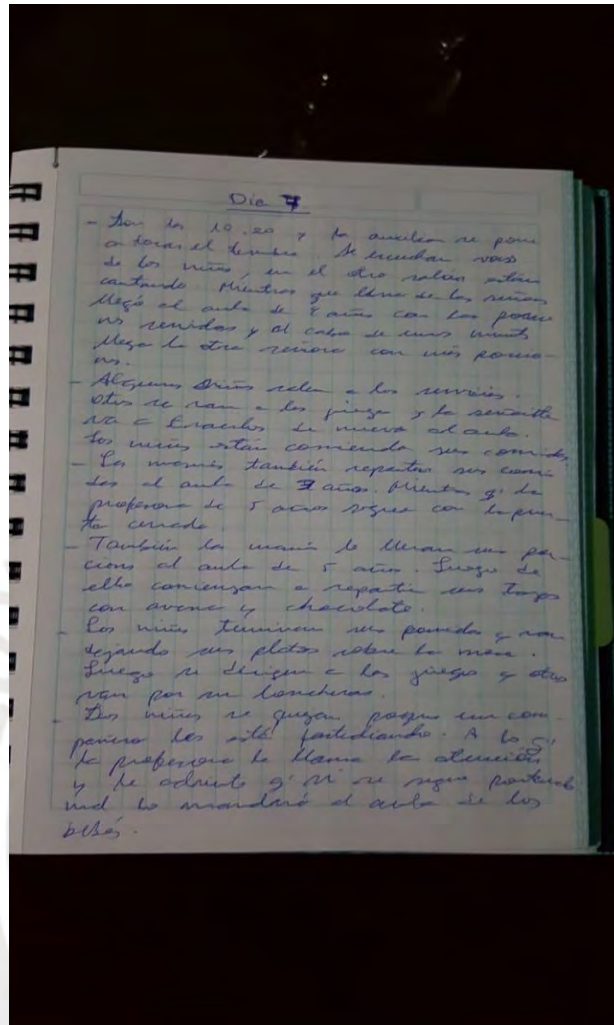 Día 7
- Son las 10.20 y la auxiliar se pone
a tocar el timbre. Se escuchan voces
de los niños, en el otro salón están
cantando. Mientras que una de las señoras
llegó al aula de 4 años con las porcio
nes servidas y al cabo de unos minuts
llega la otra señora con más porcio-
nes.
- Algunos niños salen a los servicios.
Otros se van a los juegos y la señorita
va a traerlos de nuevo al aula.
Los niños están comiendo sus comidas.
- Las mamás también reparten sus comi
das al aula de 3 años. Mientras q' la
profesora de 5 años sigue con la puer-
ta cerrada.
- También las mamás le llevan sus por-
ciones al aula de 5 años. Luego de
ello comienzan a repartir sus tazas
con avena y chocolate.
- Los niños terminan sus comidas y van
dejando sus platos sobre la mesa.
Luego se dirigen a los juegos y otros
van por sus loncheras.
- Dos niños se quejan porque un com-
pañero los está fastidiando. A lo q'
la profesora le llama la atención
y le advierte q' si se sigue portando
mal lo mandará al aula de los
bebés.